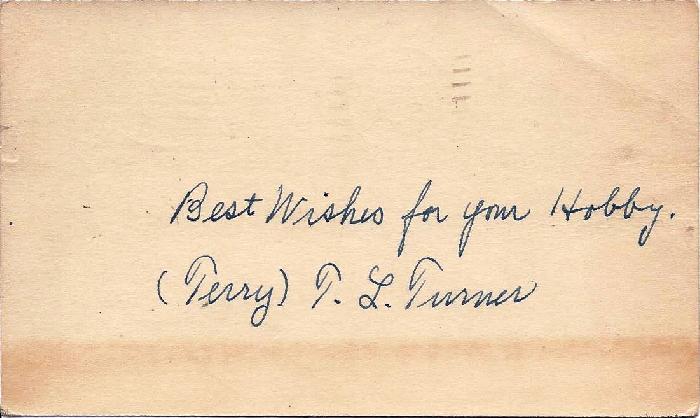 Best Wishes for your Hobby.
(Terry) T. L. Turner